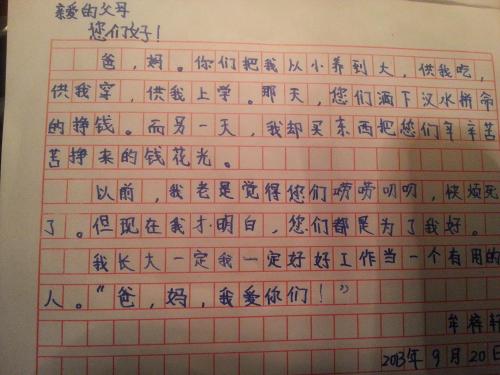 亲爱的父母
您们好！
爸，妈。你们把我从小养到大，供我吃，
供我穿，供我上学。那天，您们洒下汉水拼命
的挣钱。而另一天，我却买东西把您们辛辛苦
苦挣来的钱花光。
以前，我老是觉得您们唠唠叨叨，快烦死
了。但现在我才明白，您们都是为了我好。
我长大一定我一定好好工作当一个有用的
人。“爸，妈，我爱你们！”
牟梓轩
2013年9月20日